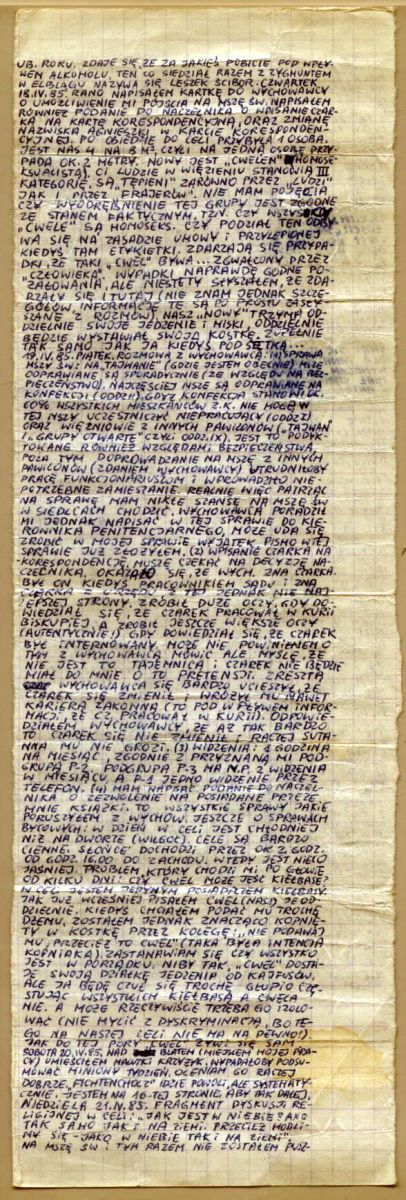 UB. ROKU. ZDAJE SIĘ, ŻE ZA JAKIEŚ POBICIE POD WPŁY-
WEM ALKOHOLU. TEN CO SIEDZIAŁ RAZEM Z ZYGMUNTEM
W ELBLĄGU NAZYWA SIĘ LESZEK ŚCIBOR. CZWARTEK
18.IV.85. RANO NAPISAŁEM KARTKĘ DO WYCHOWAWCY
O UMOŻLIWIENIE MI PÓJŚCIA NA MSZĘ ŚW. NAPISAŁEM
RÓWNIEŻ PODANIE DO NACZELNIKA O WPISANIE CZAR-
KA NA KARTĘ KORESPONDENCYJNĄ, ORAZ ZMIANĘ
NAZWISKA AGNIESZKI W KARCIE KORESPONDEN-
CYJNEJ. PO OBIEDZIE DO CELI PRZYBYŁA 1 OSOBA.
JEST NAS 4 NA 8 M², CZYLI NA JEDNĄ OSOBĘ PRZY-
PADA OK. 2 METRY. NOWY JEST "CWELEM" (HOMOSE-
KSUALISTĄ). CI LUDZIE W WIĘZIENIU STANOWIĄ III
KATEGORIĘ. SĄ "TĘPIENI" ZARÓWNO PRZEZ "LUDZI"
JAK I PRZEZ "FRAJERÓW". NIE MAM POJĘCIA
CZY WYODRĘBNIENIE TEJ GRUPY JEST ZGODNE
ZE STANEM FAKTYCZNYM, TZN. CZY WSZYSCY
"CWELE" SĄ HOMOSEKS. CZY PODZIAŁ TEN ODBY-
WA SIĘ NA ZASADZIE UMOWY I PRZYLEPIONEJ
KIEDYŚ TAM ETYKIETKI. ZDARZAJĄ SIĘ PRZYPA-
DKI, ŻE TAKI "CWEL" BYWA... ZGWAŁCONY PRZEZ
"CZŁOWIEKA". WYPADKI NAPRAWDĘ GODNE PO-
ŻAŁOWANIA, ALE NIESTETY SŁYSZAŁEM, ŻE ZDA-
RZAŁY SIĘ I TUTAJ (NIE ZNAM JEDNAK SZCZE-
GÓŁÓW. INFORMACJE TE SĄ PO PROSTU ZASŁY-
SZANE Z ROZMÓW). NASZ "NOWY" TRZYMA OD-
DZIELNIE SWOJE JEDZENIE I MISKI, ODDZIELNIE
BĘDZIE WYSTAWIAĆ SWOJĄ KOSTKĘ. ZUPEŁNIE
TAK SAMO JAK JA KIEDYŚ POD SĘTKĄ...
19.IV.85. PIĄTEK. ROZMOWA Z WYCHOWAWCĄ: (1) SPRAWA
MSZY ŚW.: NA "TAJWANIE" (GDZIE JESTEM OBECNIE) MSZE
ODPRAWIANE SĄ SPORADYCZNIE (ZE WZGLĘDU NA BEZ-
PIECZEŃSTWO). NAJCZĘŚCIEJ MSZE SĄ ODPRAWIANE NA
KONFEKCJI (ODDZ. II). GDYŻ KONFEKCJA STANOWI OK.
60% WSZYSTKICH MIESZKAŃCÓW Z.K. NIE MOGĄ W
TEJ MSZY UCZESTNICZYĆ NIEPRACUJĄCY (ODDZ. I)
ORAZ WIĘŹNIOWIE Z INNYCH PAWILONÓW ("TAJWAN"
I "GRUPY OTWARTE" CZYLI ODDZ. IX). JEST TO PODYK-
TOWANE RÓWNIEŻ WZGLĘDAMI BEZPIECZEŃSTWA.
POZA TYM DOPROWADZANIE NA MSZĘ Z INNYCH
PAWILONÓW (ZDANIEM WYCHOWAWCY) UTRUDNIŁOBY
PRACĘ FUNKCJONARIUSZOM I WPROWADZIŁO NIE-
POTRZEBNE ZAMIESZANIE. REALNIE WIĘC PATRZĄC
NA SPRAWĘ MAM NIKŁE SZANSE NA MSZĘ ŚW.
W SIEDLCACH CHODZIĆ. WYCHOWAWCA PORADZIŁ
MI JEDNAK NAPISAĆ W TEJ SPRAWIE DO KIE-
ROWNIKA PENITENCJARNEGO, MOŻE UDA SIĘ
ZROBIĆ W MOJEJ SPRAWIE WYJĄTEK. PISMO W TEJ
SPRAWIE JUŻ ZŁOŻYŁEM. (2) WPISANIE CZARKA NA
KORESPONDENCJĘ. MUSZĘ CZEKAĆ NA DECYZJĘ NA-
CZELNIKA. OKAZAŁO SIĘ, ŻE WYCH. ZNA CZARKA.
BYŁ ON KIEDYŚ PRACOWNIKIEM SĄDU I ZNA
CZARKA Z URZĘDU – Z TEJ JEDNAK NIE NAJ-
LEPSZEJ STRONY. ZROBIŁ DUŻE OCZY, GDY DO-
WIEDZIAŁ SIĘ, ŻE CZAREK PRACOWAŁ W KURII
BISKUPIEJ, A ZROBIŁ JESZCZE WIĘKSZE OCZY
(AUTENTYCZNIE!) GDY DOWIEDZIAŁ SIĘ, ŻE CZAREK
BYŁ INTERNOWANY. MOŻE NIE POWINIENEM O
TYM Z WYCHOWAWCĄ MÓWIĆ ALE MYŚLĘ, ŻE
NIE JEST TO TAJEMNICA I CZAREK NIE BĘDZIE
MIAŁ DO MNIE O TO PRETENSJI. ZRESZTĄ
WYCHOWAWCA SIĘ BARDZO UCIESZYŁ, ŻE
CZAREK SIĘ ZMIENIŁ I WRÓŻYŁ MU NAWET
KARIERĘ ZAKONNĄ (TO POD WPŁYWEM INFOR-
MACJI, ŻE CZ. PRACOWAŁ W KURII). ODPOWIE-
DZIAŁEM WYCHOWAWCY, ŻE AŻ TAK BARDZO
TO CZAREK SIĘ NIE ZMIENIŁ I RACZEJ SUTA-
NNA MU NIE GROZI. (3) WIDZENIA: 1 GODZINA
NA MIESIĄC, ZGODNIE Z PRZYZNANĄ MI POD-
GRUPĄ P-2. PODGRUPA P-3 MA N.P. 2 WIDZENIA
W MIESIĄCU A P-1 JEDNO WIDZENIE PRZEZ
TELEFON. (4) MAM NAPISAĆ PODANIE DO NACZEL-
NIKA O ZEZWOLENIE NA POSIADANE PRZEZE
MNIE KSIĄŻKI. TO WSZYSTKIE SPRAWY JAKIE
PORUSZYŁEM Z WYCHOW. JESZCZE O SPRAWACH
BYTOWYCH: W DZIEŃ W CELI JEST CHŁODNIEJ
NIŻ NA DWORZE (WILGOĆ). CELE SĄ BARDZO
CIEMNE. SŁOŃCE DOCHODZI PRZEZ OK 2 GODZ.
OD GODZ. 16.00 DO ZACHODU. WTEDY JEST NIECO
JAŚNIEJ. PROBLEM, KTÓRY CHODZI MI PO GŁOWIE
OD KILKU DNI: CZY CWEL MOŻE JEŚĆ KIEŁBASĘ?
W CELI JESTEM JEDYNYM POSIADACZEM KIEŁBASY.
JAK JUŻ WCZEŚNIEJ PISAŁEM CWEL (NASZ) JE OD-
DZIELNIE. KIEDYŚ CHCIAŁEM PODAĆ MU TROCHĘ
DŻEMU, ZOSTAŁEM JEDNAK ZNACZĄCO KOPNIĘ-
TY W KOSTKĘ PRZEZ KOLEGĘ: "NIE PODAWAJ
MU, PRZECIEŻ TO CWEL" (TAKA BYŁA INTENCJA
KOPNIAKA). ZASTANAWIAM SIĘ CZY WSZYSTKO
JEST W PORZĄDKU. NIBY TAK, "CWEL" DOSTA-
JE SWOJĄ DZIAŁKĘ JEDZENIA OD KALFUSÓW,
ALE JA BĘDĘ CZUŁ SIĘ TROCHĘ GŁUPIO CZĘ-
STUJĄC WSZYSTKICH KIEŁBASĄ A CWELA
NIE. A MOŻE RZECZYWIŚCIE TRZEBA GO IZOLO-
WAĆ (NIE MYLIĆ Z DYSKRYMINACJĄ), BO TE-
GO NA NASZEJ CELI NIE MA NA PEWNO!).
JAK DO TEJ PORY "CWEL" ŻYWI SIĘ SAM
SOBOTA 20.IV.85. NAD BIUTEM (MIEJSCEM MOJEJ PRA-
CY) UMIEŚCIŁEM MALUTKI KRZYŻYK. WYPADAŁOBY PODSU-
MOWAĆ MINIONY TYDZIEŃ, OCENIAM GO RACZEJ
DOBRZE. "FICHTENCHOLZ" IDZIE POWOLI, ALE SYSTEMATY-
CZNIE. JESTEM NA 16-TEJ STRONIE. ABY TAK DALEJ.
NIEDZIELA 21.IV.85. FRAGMENT DYSKUSJI RE-
LIGIJNEJ W CELI: "JAK JEST W NIEBIE? ANO
TAK SAMO JAK I NA ZIEMI. PRZECIEŻ MODLI-
MY SIĘ – JAKO W NIEBIE TAK I NA ZIEMI"
NA MSZĘ ŚW. I TYM RAZEM NIE ZOSTAŁEM PUSZ-